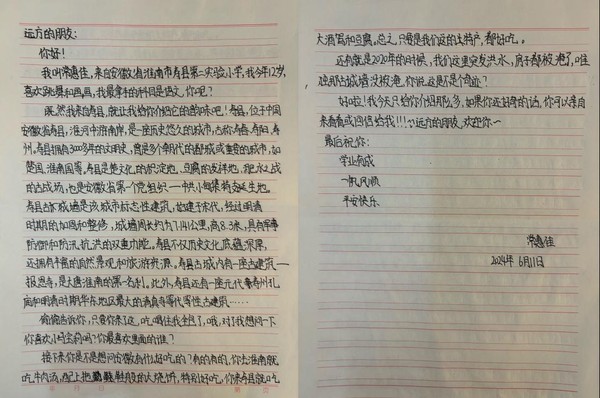 远方的朋友:
你好!
我叫常惠佳,来自安徽省淮南市寿县第二实验小学,我今年12岁,
喜欢跳舞和画画,我最拿手的科目是语文,你呢?
既然我来自寿县,就让我给你介绍它的韵味吧!寿县,位于中国
安徽省寿县,淮河中游南岸,是一座历史悠久的城市,古称寿春、寿阳、寿
州。寿县拥有3000多年的文明史,曾是多个朝代的都城或重要的城市,如
楚国、淮南国等。寿县是楚文化的积淀地、豆腐的发祥地,淝水之战
的古战场,也是安徽省第一个党组织——中共小甸集特支诞生地。
寿县古城墙是该城市标志性建筑,始建于宋代,经过明清
时期的加固和整修,城墙周长约为7141公里,高8.3米,具有军事
防御和防汛抗洪的双重功能。寿县不仅历史文化底蕴深厚,
还拥有丰富的自然景观和旅游资源。寿县古城内有一座古建筑——
报恩寺,是大唐淮南的第一名刹。此外,寿县还有座元代寿州孔
庙和明清时期华东地区最大的清真寺等代表性古建筑……
偷偷告诉你,只要你来了这,吃喝住我全包了,哦,对了我想问一下
你喜欢小马宝莉吗?你最喜欢里面的谁?
接下来你是不是想问安徽有什么好吃的?有的有的,你去淮南就
吃牛肉汤,配上把鞋般的大烧饼,特别好吃,你来寿县就吃
大酒窝和豆腐。总之,只要是我们这的土特产,都好吃。
还有就是2020年的时候,我们这里突发洪水,房子都被淹了,唯
独那古城墙没被淹,你说这是不是个奇迹?
好啦!我今天只给你介绍那么多,如果你还好奇的话,你可以亲自
来看看或回信给我!!!远方的朋友,欢迎你~
最后祝你:
学业有成
一帆风顺
平安快乐
常惠佳
2024年6月11日